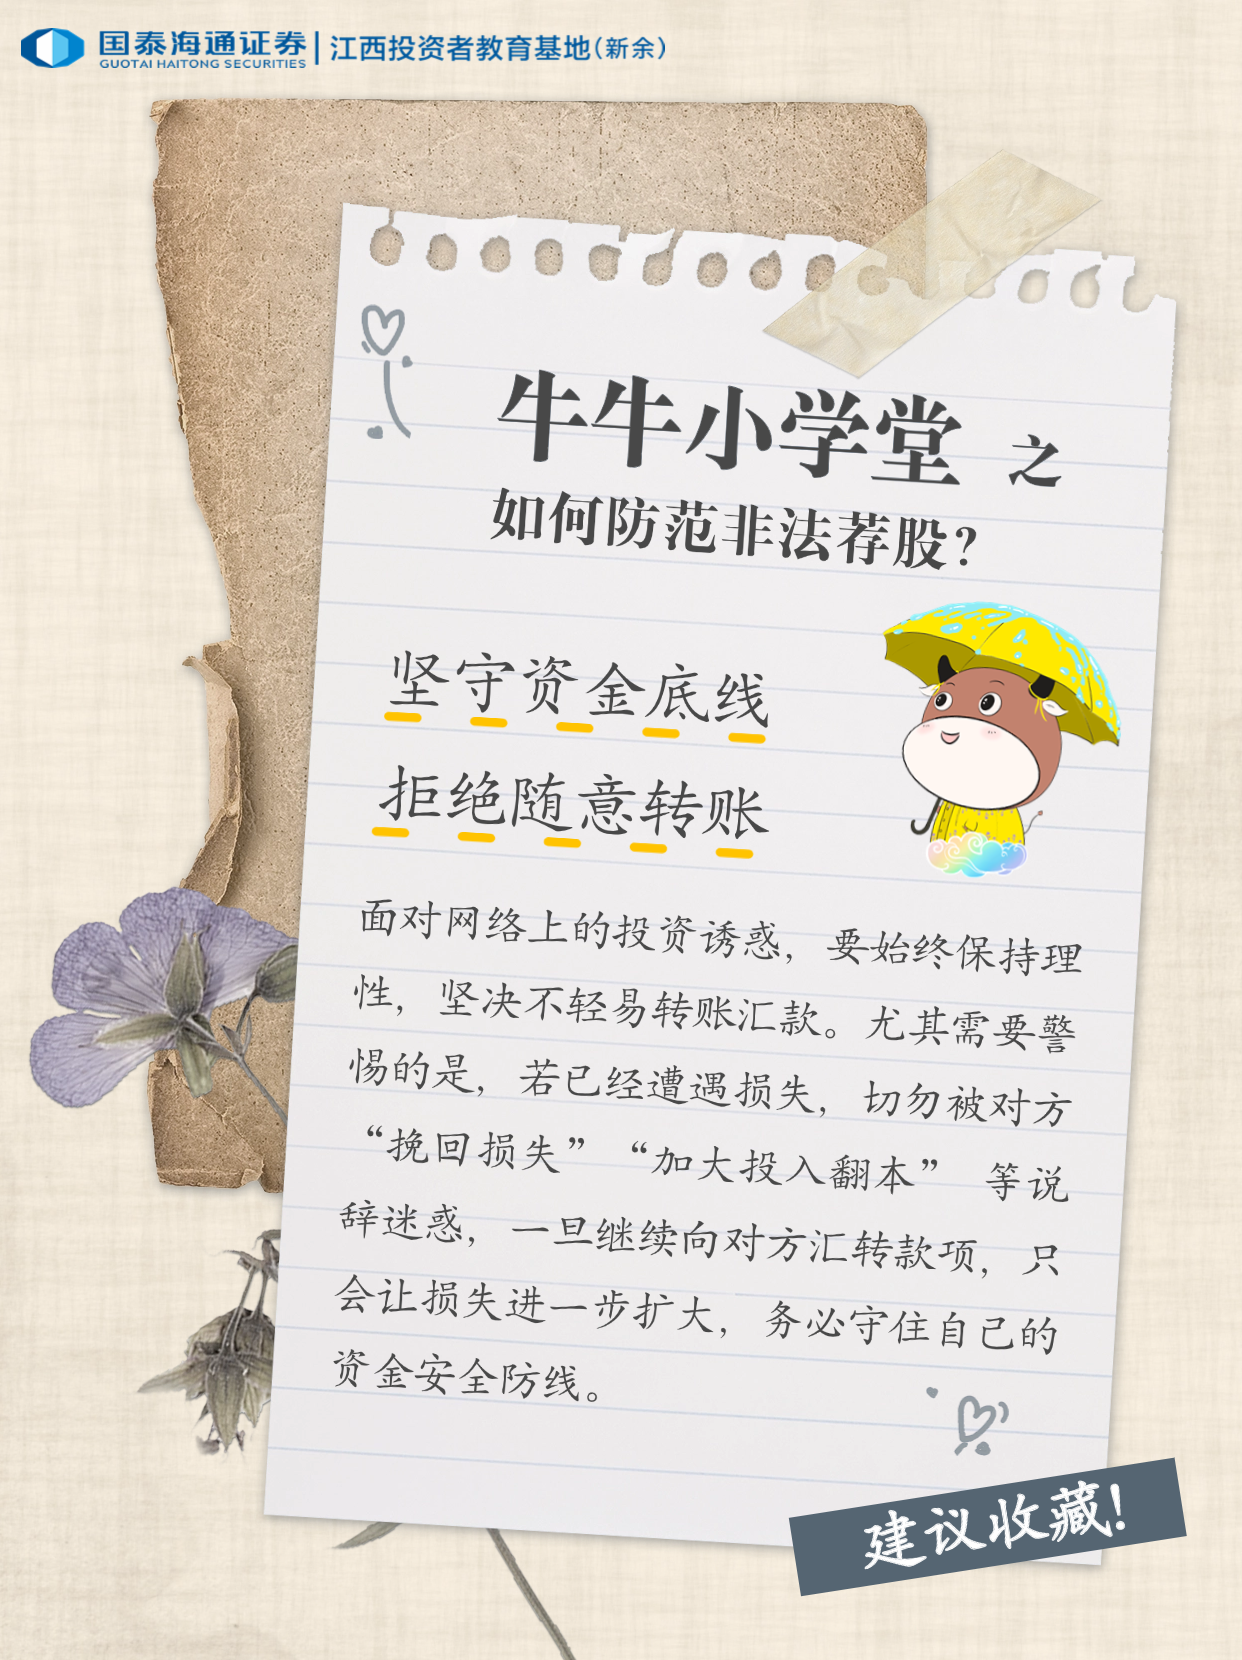 国泰海通证券 | 江西投资者教育基地(新余)
GUOTAI HAITONG SECURITIES
牛牛小学堂 之
如何防范非法荐股?
坚守资金底线
拒绝随意转账
面对网络上的投资诱惑，要始终保持理
性，坚决不轻易转账汇款。尤其需要警
惕的是，若已经遭遇损失，切勿被对方
“挽回损失”“加大投入翻本” 等说
辞迷惑，一旦继续向对方汇转款项，只
会让损失进一步扩大，务必守住自己的
资金安全防线。
建议收藏!